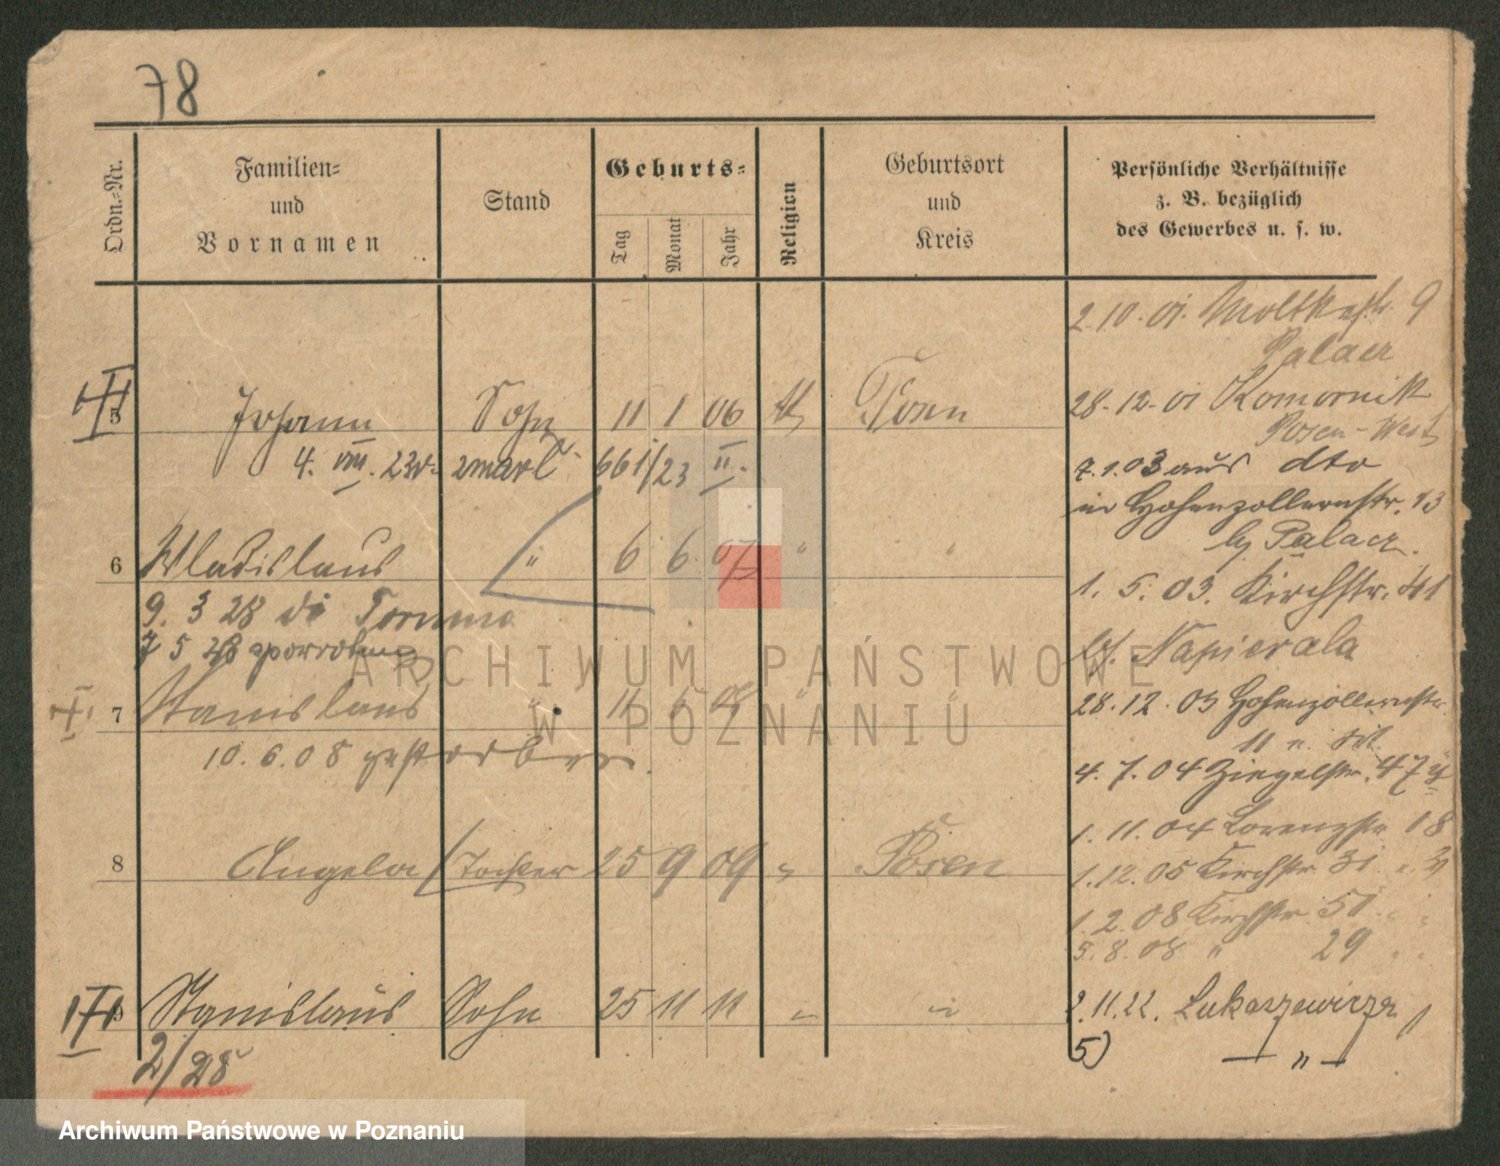 78
Ordn.-Nr.
Familien-
und
Vornamen
Stand
Geburts-
Tag
Monat
Jahr
Religion
Geburtsort
und
Kreis
Persönliche Verhältnisse
z. B. bezüglich
des Gewerbes u. s. w.
2.10.01. Moltkestr. 9
Palacz
5 Johann Sohn 11 1 06 Posen
28.12.01 Komornik
Posen-West
4. VIII. 23r. zmarł 661/23 II.
7.1.03 aus dto
in Hohenzollernstr. 13
Palacz.
6 Wladislaus " 6 6 07 " "
1. 5. 03. Kirchstr. 41
9. 3 28 do Torunia
7 5 28 z powrotem
Napierala
7 Stanislaus " 11 6 08 " "
28.12.03 Hohenzollernstr.
11
10.6.08 gestorben.
4.7.04 Ziegelstr. 47
1.11.04 Lorenzstr 18
8 Angela Tochter 25 9 09 " Posen
1.12.05 Kirchstr 31
1.2.08 Kirchstr 51
5.8.08 " 29
9 Stanislaus Sohn 25 11 11 " "
2.11.22. Lukaszewicza 1
2/28
5) — " —
ARCHIWUM PAŃSTWOWE
W POZNANIU
Archiwum Państwowe w Poznaniu